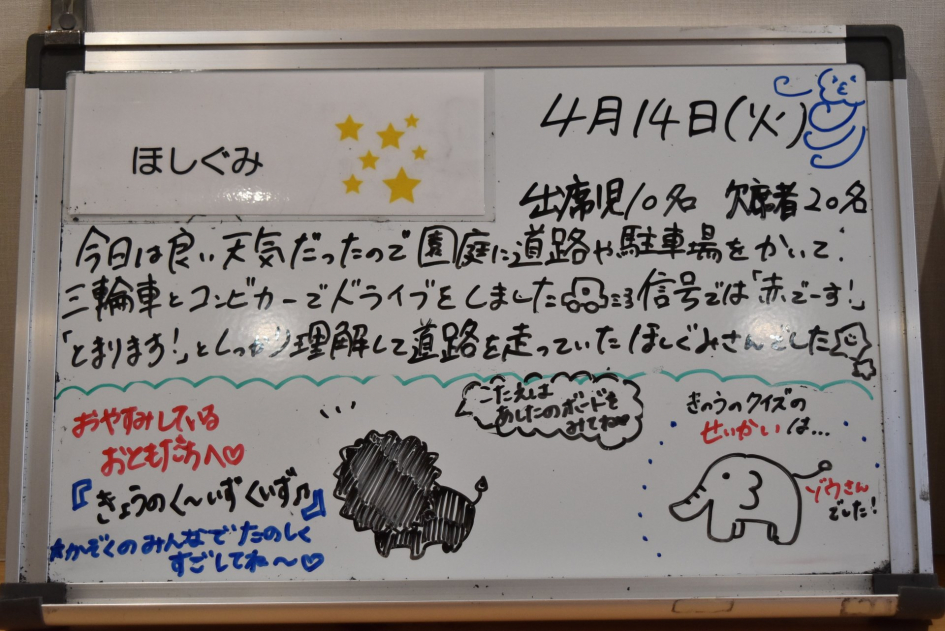 ほしぐみ
4月14日(火)
出席児10名 欠席者20名
今日は良い天気だったので園庭に道路や駐車場をかいて、
三輪車とコンビカーでドライブをしました 信号では「赤でーす!」
「とまります!」としっかり理解して道路を走っていたほしぐみさんでした
おやすみしている
おともだちへ♡
『きょうのく〜いずくいず♫』
★かぞくのみんなでたのしく
すごしてね〜♡
こたえは
あしたのボードを
みてね♡
きのうのクイズの
せいかいは…
ゾウさん
でした!